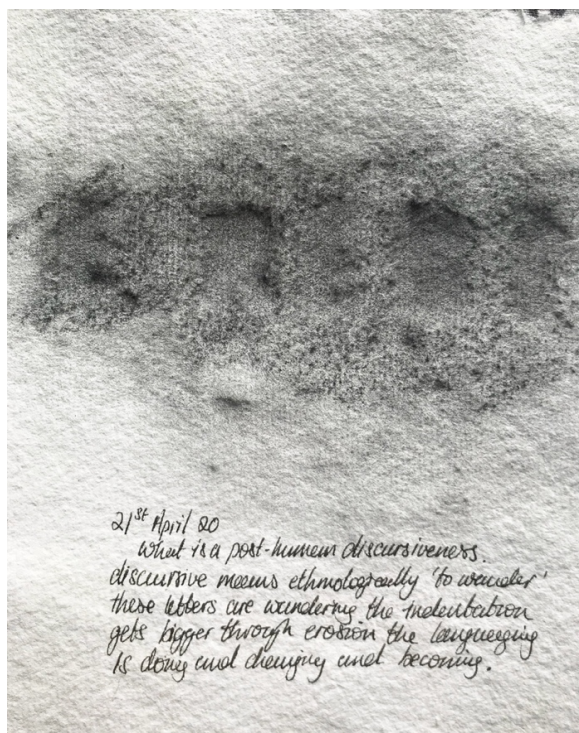 21st April 20
What is a post-human discursiveness.
discursive means ethmologically 'to wander'
these letters are wandering the indentation
gets bigger through erosion the languaging
is doing and changing and becoming.